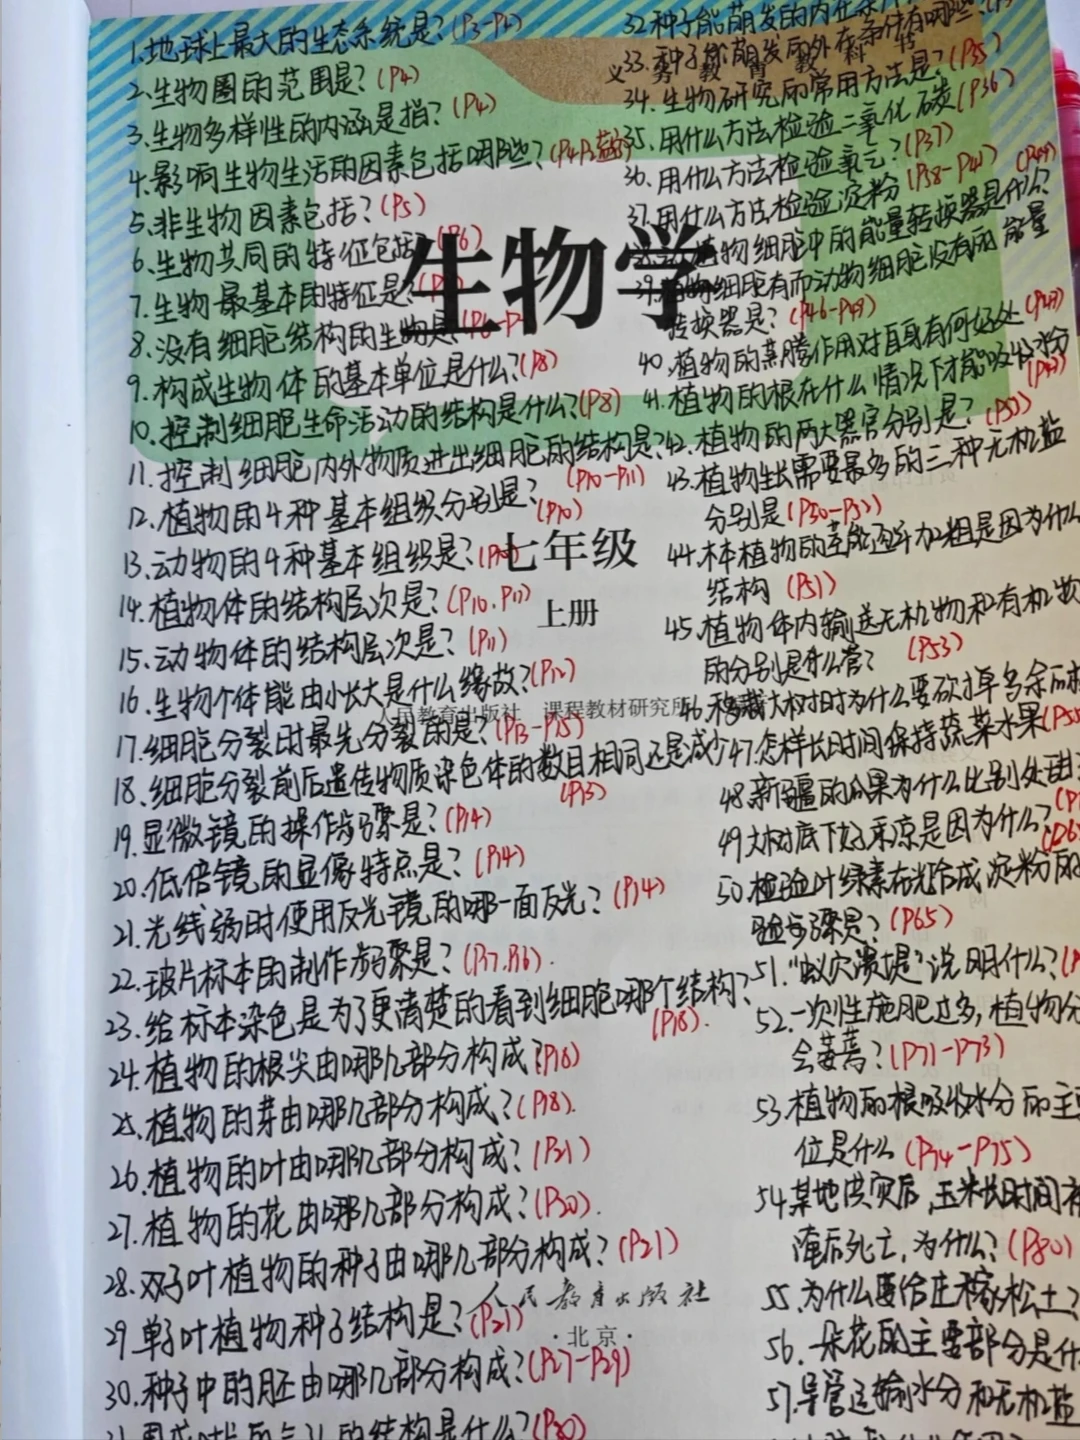 1.地球上最大的生态系统是?(P3-P12)
2.生物圈的范围是?(P4)
3.生物多样性的内涵是指?(P4)
4.影响生物生活的因素包括哪些?
5.非生物因素包括?(P5)
6.生物共同的特征包括
7.生物最基本的特征是?
8.没有细胞结构的生物是
9.构成生物体的基本单位是什么?(P8)
10.控制细胞生命活动的结构是什么?(P8)
11.控制细胞内外物质进出细胞的结构是?
(P10-P11)
12.植物的4种基本组织分别是?(P10)
13.动物的4种基本组织是?
14.植物体的结构层次是?(P10.P11)
15.动物体的结构层次是?(P11)
16.生物个体能由小长大是什么缘故?(P12)
17.细胞分裂时最先分裂的是?(P13-P15)
18.细胞分裂前后遗传物质染色体的数目相同还是减少
(P13)
19.显微镜的操作步骤是?(P14)
20.低倍镜的显像特点是?(P14)
21.光线弱时使用反光镜的哪一面反光?(P14)
22.玻片标本的制作步骤是?(P17.P16).
23.给标本染色是为了更清楚的看到细胞哪个结构?
(P18).
24.植物的根尖由哪几部分构成?(P16)
25.植物的芽由哪几部分构成?(P18).
26.植物的叶由哪几部分构成?(P21)
27.植物的花由哪几部分构成?(P20).
28.双子叶植物的种子由哪几部分构成?(P21)
29.单子叶植物种子结构是?(P21)
30.种子中的胚由哪几部分构成?(P27-P29)
的结构是什么?(P30)
32.种子能萌发的内在条件
33.种子能萌发的外在条件有哪些?
34.生物研究的常用方法是?(P35)
35.用什么方法检验二氧化碳(P36)
36.用什么方法检验氧气?(P37)
37.用什么方法检验淀粉(P38-P41)
植物细胞中的能量转换器是什么?(P44)
39.植物细胞有而动物细胞没有的能量
转换器是?(P46-P49)
40.植物的蒸腾作用对自身有何好处
41.植物的根在什么情况下才能吸收水分
42.植物的两大器官分别是?
43.植物生长需要最多的三种无机盐
分别是(P50-P52)
44.木本植物的茎能逐年加粗是因为什么
结构(P51)
45.植物体内输送无机物和有机物
的分别是什么管?(P53)
46.移栽大树时为什么要砍掉多余
47.怎样长时间保持蔬菜水果(P55
48.新疆的瓜果为什么比别处甜
49.大树底下好乘凉是因为什么?
50.检验叶绿素在光合成淀粉的
验步骤是?(P65)
51."蚁穴溃堤"说明什么?
52.一次性施肥过多,植物
会萎蔫?(P71-P73)
53.植物的根吸收水分的主
位是什么(P74-P75)
54.某地洪灾后,玉米长时间
淹后死亡,为什么?(P80)
55.为什么要给庄稼松土?
56.一朵花的主要部分是什
57.导管运输水分和无机盐
义务教育教科书
生物学
七年级
上册
人民教育出版社 课程教材研究所
人民教育出版社
·北京·